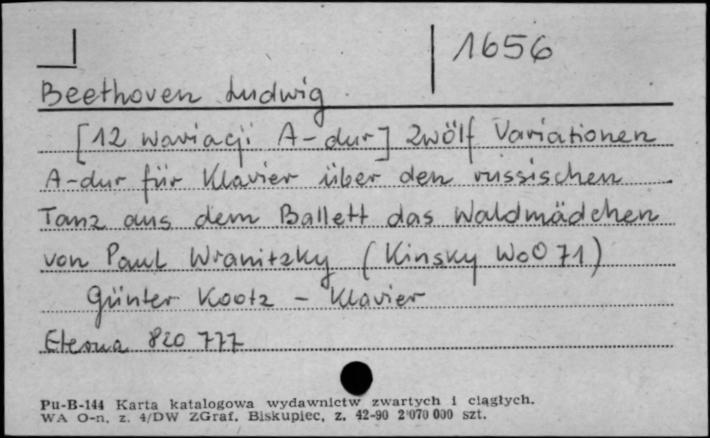 1656
Beethoven Ludwig
[12 wariacji A-dur] Zwölf Variationen
A-dur für Klavier über den russischen
Tanz aus dem Ballett das Waldmädchen
von Paul Wranitzky (Kinsky WoO 71)
Günter Kootz - Klavier
Eterna 820 777
Pu-B-144 Karta katalogowa wydawnictw zwartych i ciągłych.
WA O-n. z. 4/DW ZGraf. Biskupiec, z. 42-90 2'070 000 szt.